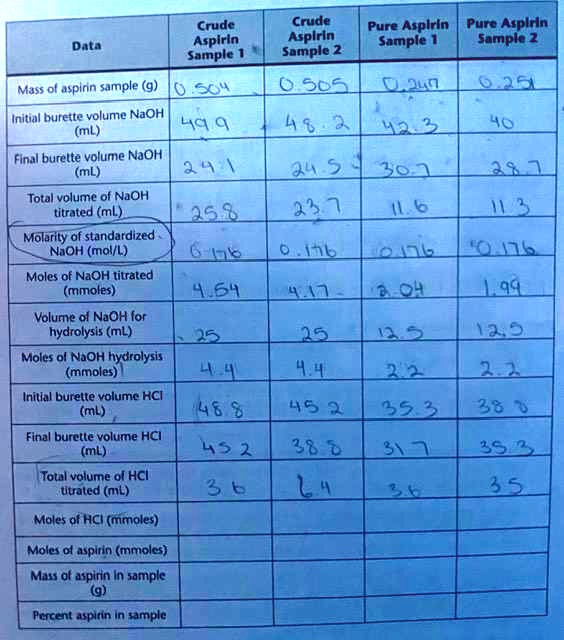 Data
Crude
Aspirin
Sample 1
Crude
Aspirin
Sample 2
Pure Aspirin
Sample 1
Pure Aspirin
Sample 2
Mass of aspirin sample (g) 0.504 0.505 0.247 0.251
Initial burette volume NaOH
(mL) 49.9 48.2 42.3 40
Final burette volume NaOH
(mL) 24.1 24.5 30.7 28.7
Total volume of NaOH
titrated (mL) 25.8 23.7 11.6 11.3
Molarity of standardized
NaOH (mol/L) 0.176 0.176 0.176 0.176
Moles of NaOH titrated
(mmoles) 4.54 4.17 2.04 1.99
Volume of NaOH for
hydrolysis (mL) 25 25 12.5 12.5
Moles of NaOH hydrolysis
(mmoles) 4.4 4.4 2.2 2.2
Initial burette volume HCl
(mL) 48.8 45.2 35.3 38.8
Final burette volume HCl
(mL) 45.2 38.8 31.7 35.3
Total volume of HCl
titrated (mL) 3.6 6.4 3.6 3.5
Moles of HCl (mmoles)
Moles of aspirin (mmoles)
Mass of aspirin in sample
(g)
Percent aspirin in sample